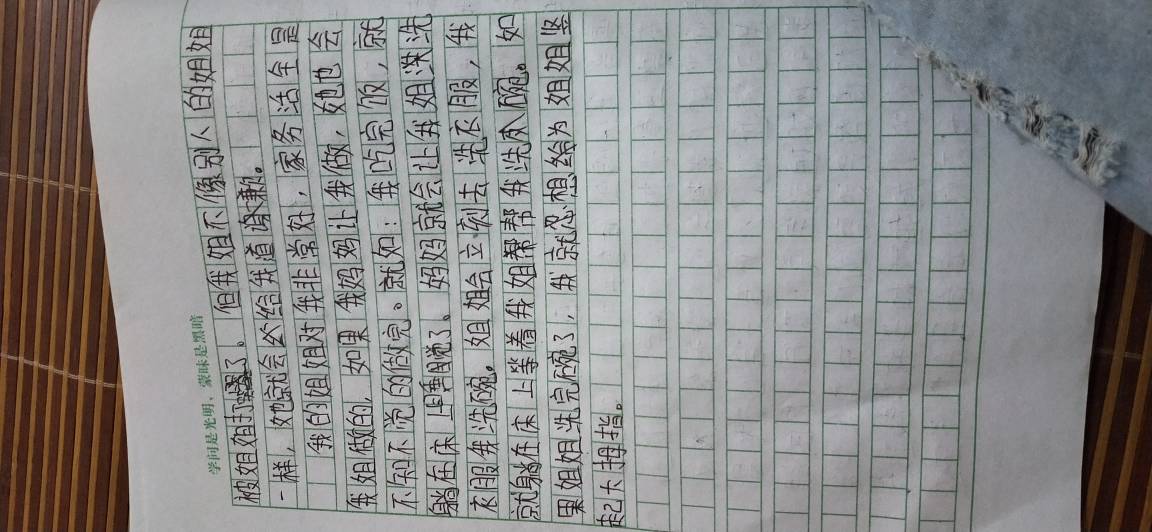 学问是光明，蒙昧是黑暗
被姐姐打哭了。但我姐不像别人的姐姐
一样，她就会给我道谢歉。
我的姐姐对我非常好，家务活全是
我姐做的，如果我妈妈让我做，她也会
不知不觉的做完。就如：我吃完饭，就
躺在床上睡了。妈妈就会让我姐洗洗
衣服我洗碗。姐姐会立刻去洗衣服，我
就躺在床上等着我姐帮我洗衣碗。如
果姐姐洗完碗了，我就忍想给为姐姐竖
起大拇指。